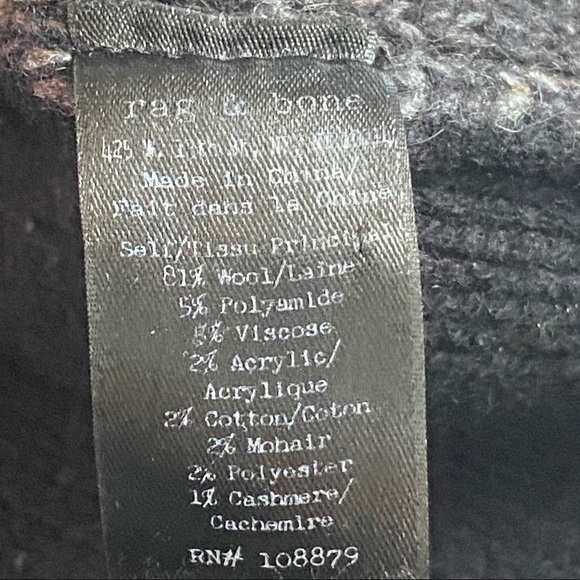 rag & bone
425 W. 13th St, NY, NY 10014
Made in China/
Fait dans la Chine
Self/Tissu Principal
81% Wool/Laine
5% Polyamide
5% Viscose
2% Acrylic/
Acrylique
2% Cotton/Coton
2% Mohair
2% Polyester
1% Cashmere/
Cachemire
RN# 108879